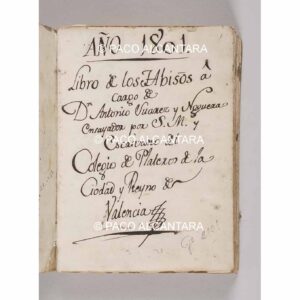 © PACO ALCÁNTARA
AÑO 1801
Libro de los Abisos â
cargo de
Dn Antonio Suarez y Noguera
Ensayador por S. M. y
Escrivano del
Colegio de Plateros de la
© PACO ALCÁNTARA
Ciudad y Reyno de
Valencia
© PACO ALCÁNTARA